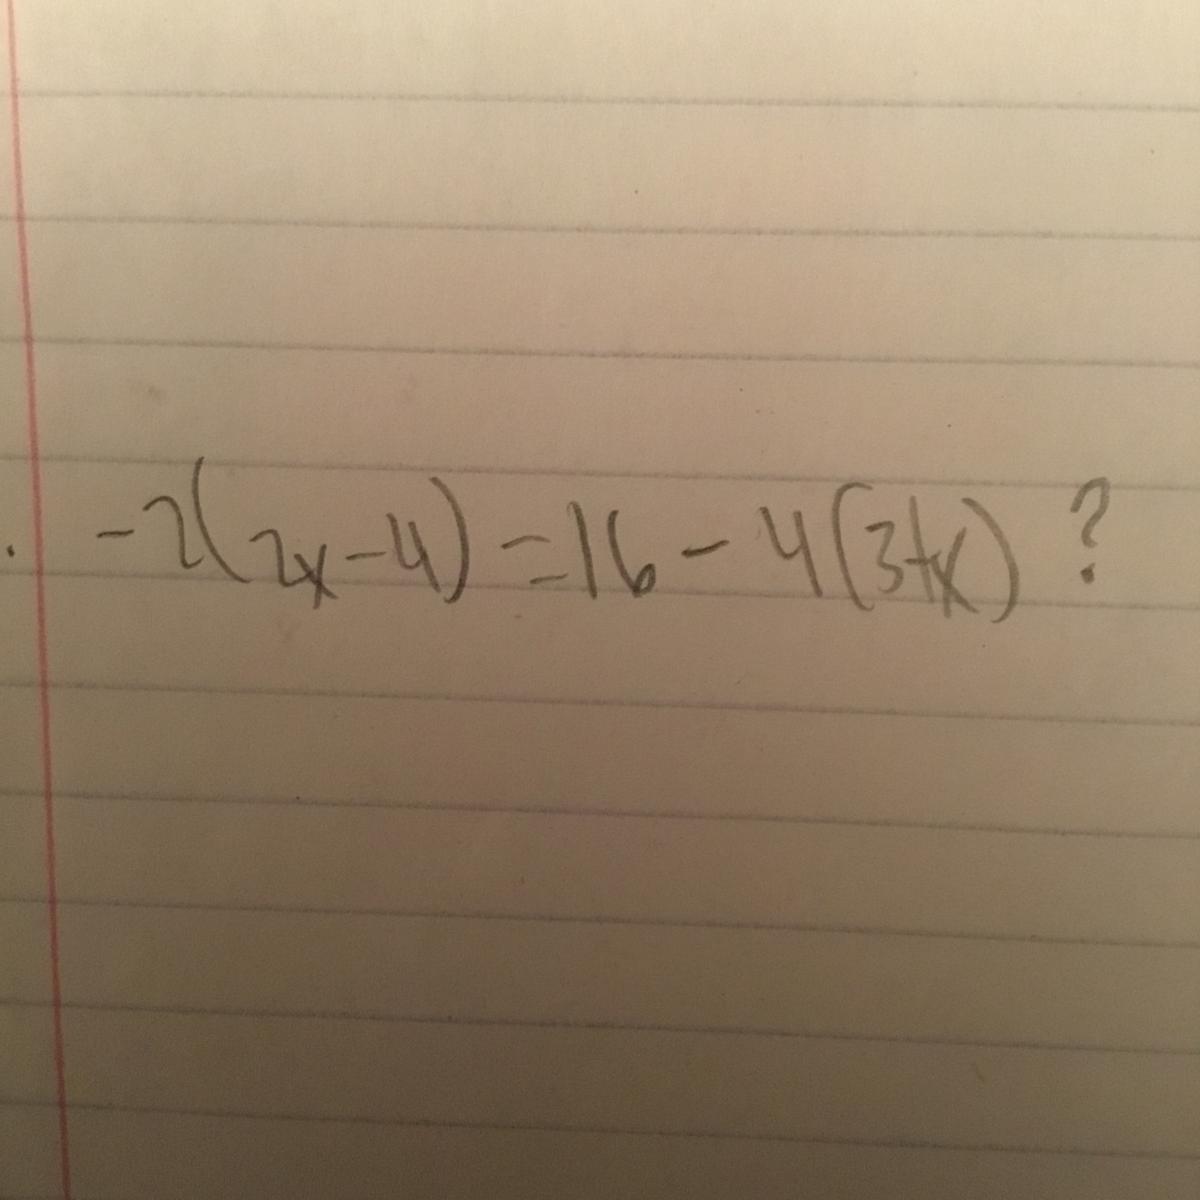 . -2(2x-4)=16-4(3+x)?